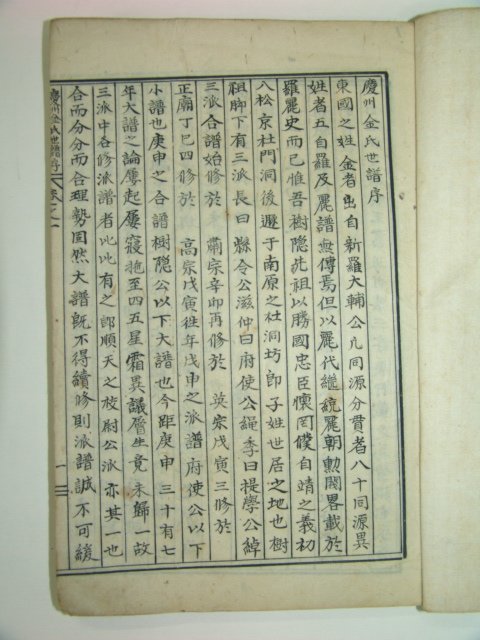 慶州金氏世譜序
東國之姓金者出自新羅大輔公凡同源分貫者八十同源異
姓者五自羅及麗譜無傳焉但以麗代繼統羅朝勳閥畧載於
羅麗史而已惟吾樹隱先祖以勝國忠臣懷罔僕自靖之義初
八松京杜門洞後遯于南原之杜洞坊卽子姓世居之地也樹
祖脚下有三派長曰縣令公滋仲曰府使公繩季曰提學公綽
三派合譜始修於 肅宗辛卯再修於 英宗戊寅三修於
正廟丁巳四修於 高宗戊寅徃年戊申之派譜府使公以下
小譜也庚申之合譜樹隱公以下大譜也今距庚申三十有七
年大譜之論屢起屢寢拖至四五星霜異議層生竟未歸一故
三派中各修派譜者比比有之卽順天之校尉公派亦其一也
合而分分而合理勢固然大譜旣不得續修則派譜誠不可緩
慶州金氏世譜序 卷之一
一